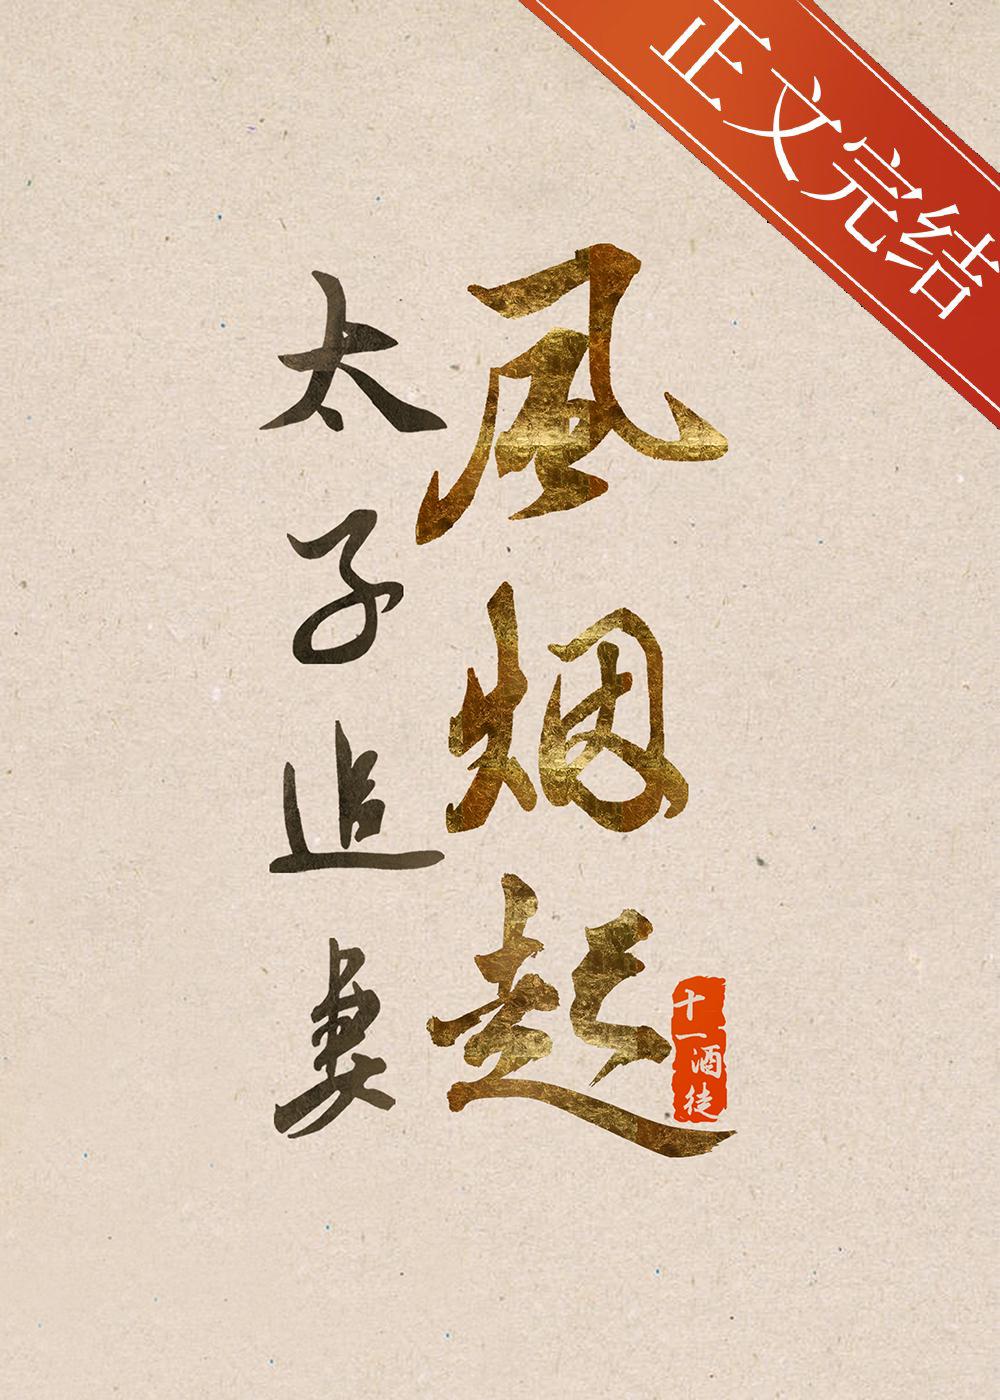 正文完结
風烟起
太子追妻
十一酒徒